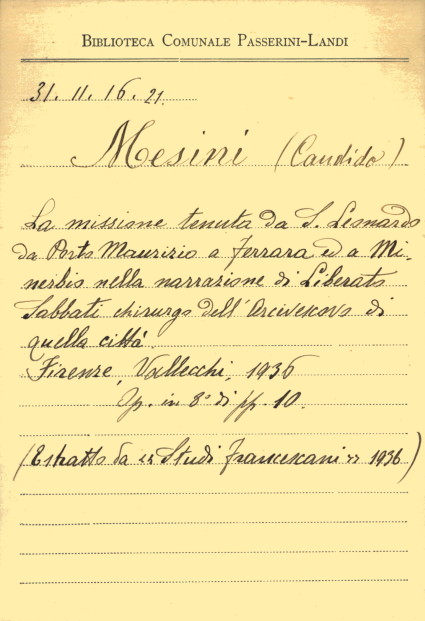 BIBLIOTECA COMUNALE PASSERINI-LANDI
31. 11. 16. 21.
Mesini (Candido)
La missione tenuta da S. Leonardo
da Porto Maurizio a Ferrara ed a Mi-
nerbio nella narrazione di Liberato
Sabbati chirurgo dell'Arcivescovo di
quella città.
Firenze, Vallecchi, 1936
Op. in 8° di pp. 10.
(Estratto da «Studi Francescani» 1936)